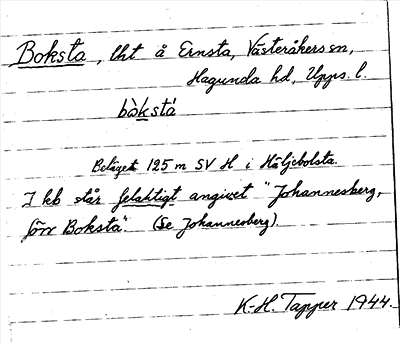 Boksta, lht å Ernsta, Västeråkers sn,
Hagunda hd, Upps. l.
bò̀kstá
Beläget 125 m SV H i Häljebolsta.
I kb står felaktigt angivet "Johannesberg,
förr Boksta". (Se Johannesberg).
K.-H. Tapper 1944.